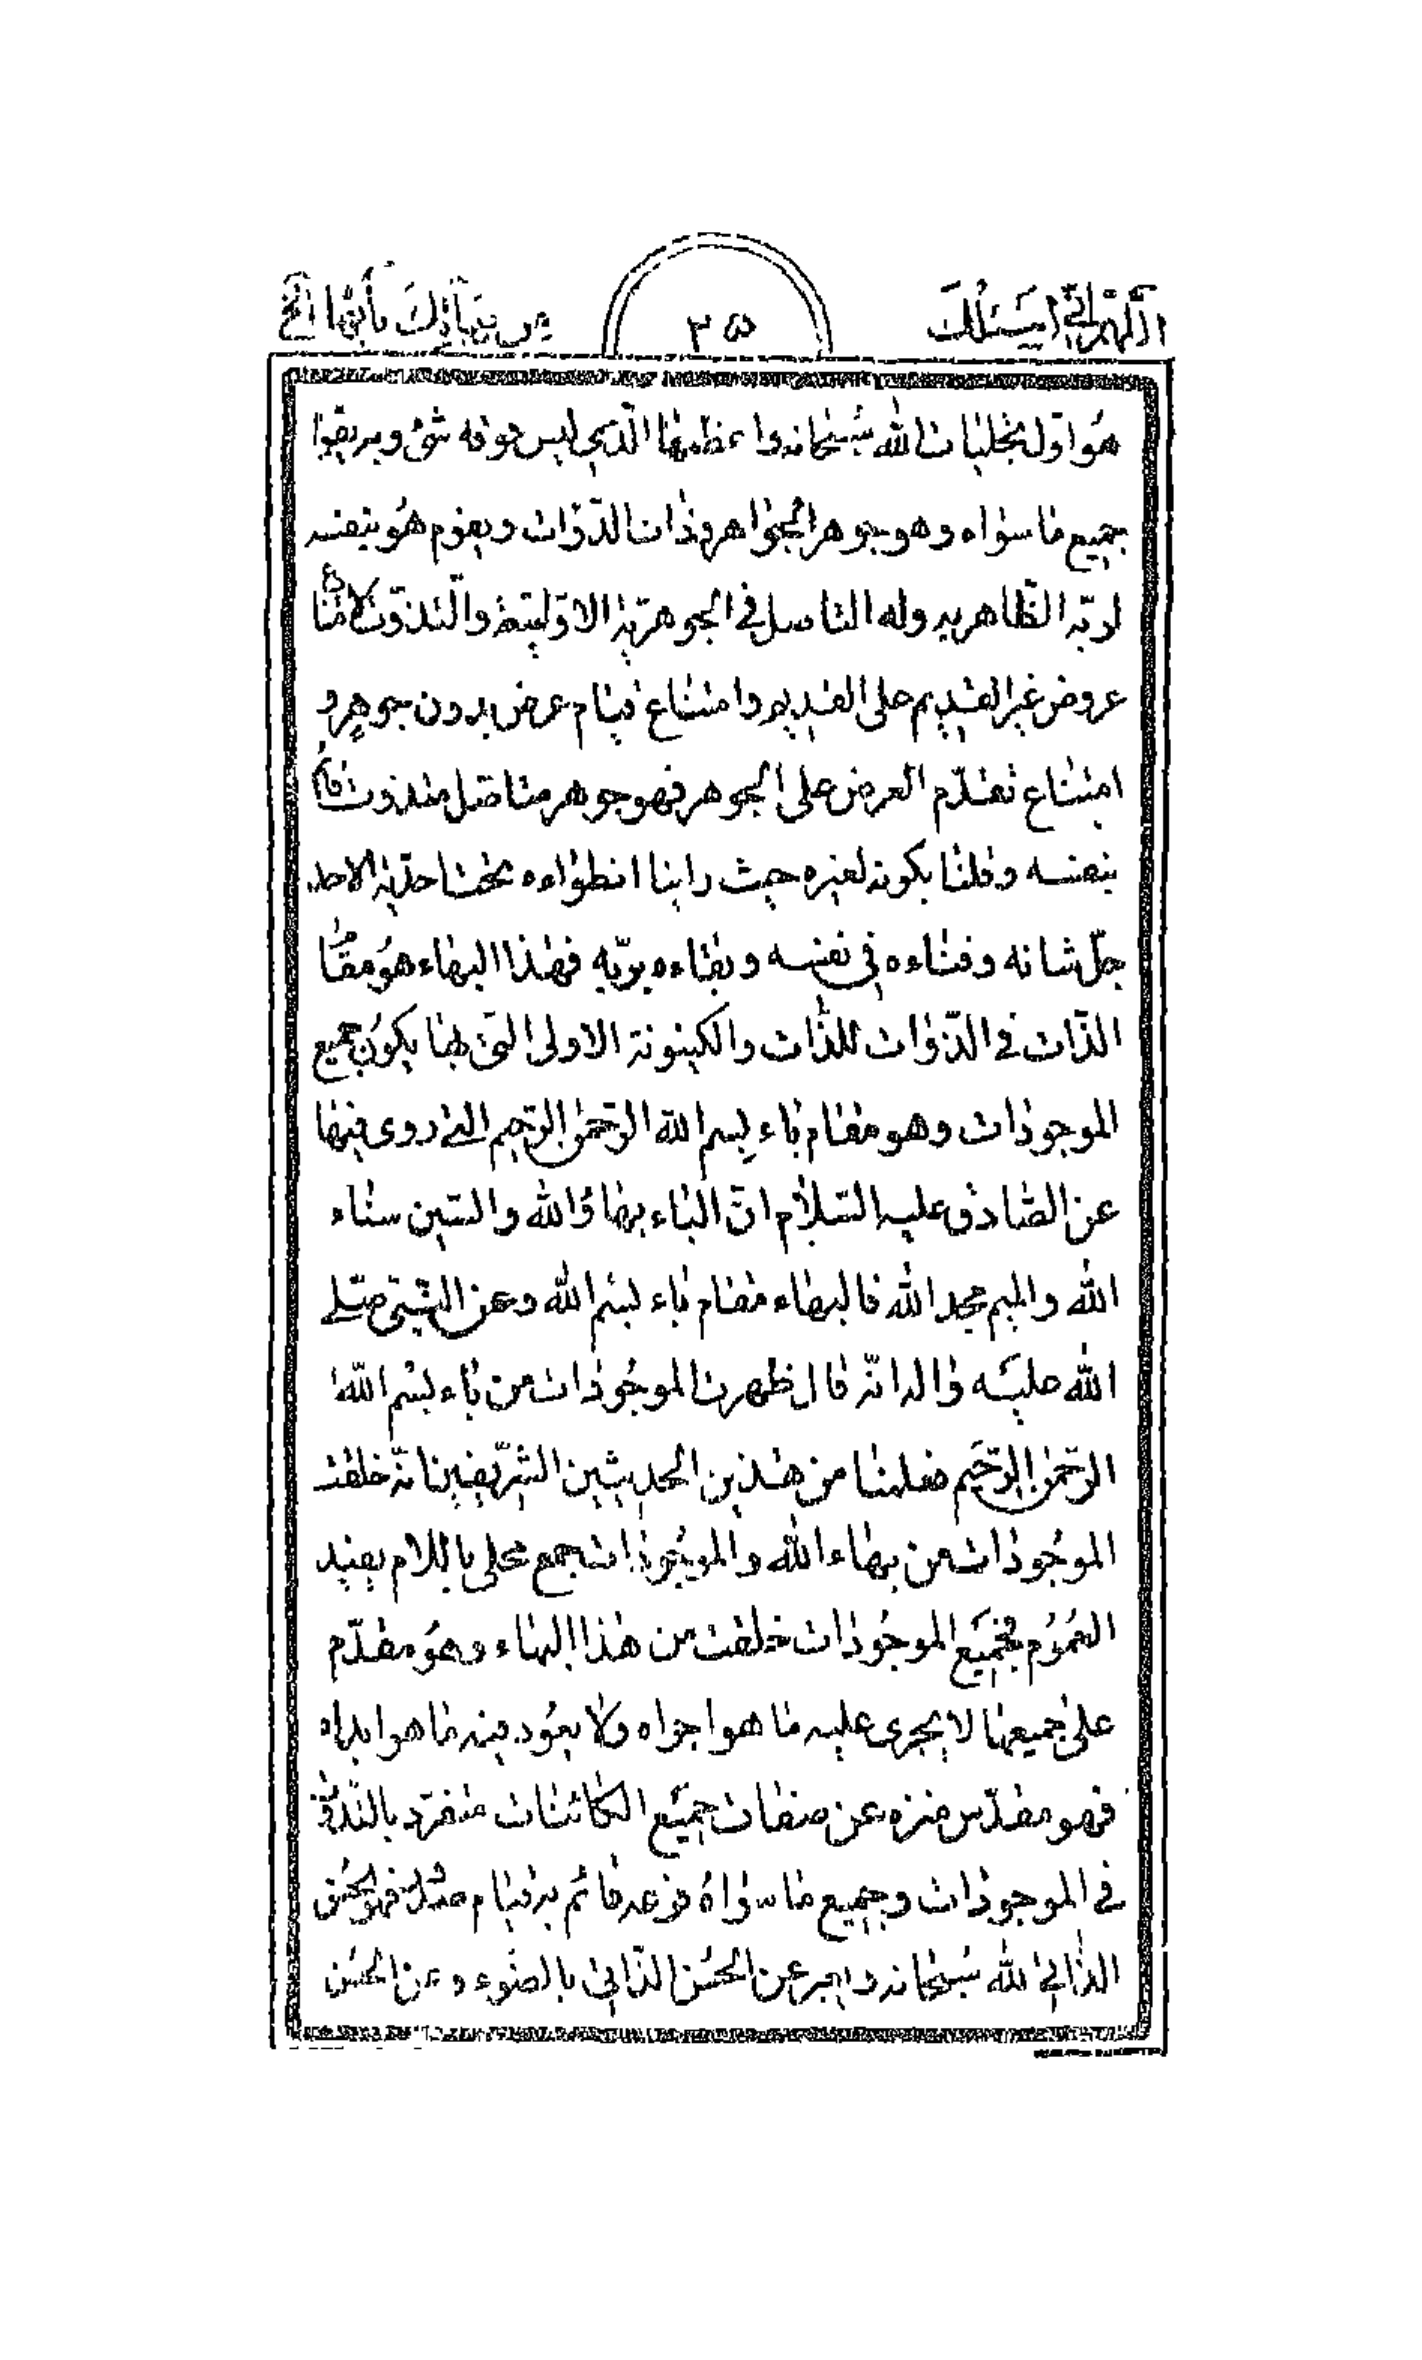 اللهم اني اسئلك
۳۵
من بهائك بأبهاه الخ
هو اول تجليات الله سبحانه واعظمها الذي ليس فوقه شئ وبه يقوم
جميع ما سواه وهو جوهر الجواهر وذات الذوات ويقوم هو بنفسه
لربه الظاهر به وله التاصل في الجوهرية الاولية والتذوت
عروض غير القديم على القديم وامتناع قيام عرض بدون جوهر و
امتناع تقدم العرض على الجوهر فهو جوهر متاصل متذوت قائم
بنفسه وقلنا بكونه لغيره حيث راينا انطواءه تحت احدية الاحد
جل شانه وفناءه في نفسه وبقاءه بربه فهذا البهاء هو مقام
الذات في الذوات للذات والكينونة الاولى التي بها يكون جميع
الموجودات وهو مقام باء بسم الله الرحمن الرحيم التي روى فيها
عن الصادق عليه السلام ان الباء بهاء الله والسين سناء
الله والميم مجد الله فالبهاء مقام باء بسم الله وعن النبي صلى
الله عليه واله انه قال ظهرت الموجودات من باء بسم الله
الرحمن الرحيم فعلمنا من هذين الحديثين الشريفين انه خلقت
الموجودات من بهاء الله والموجودات جمع محلى باللام يفيد
العموم فجميع الموجودات خلقت من هذا البهاء وهو مقدم
على جميعها لا يجرى عليه ما هو اجراه ولا يعود فيه ما هو ابداه
فهو مقدس منزه عن صفات جميع الكائنات متفرد بالتذوت
في الموجودات وجميع ما سواه فرعه قائم به قيام فهو الحسن
الذاتي لله سبحانه ويعبر عن الحسن الذاتي بالضوء وعن الحسن